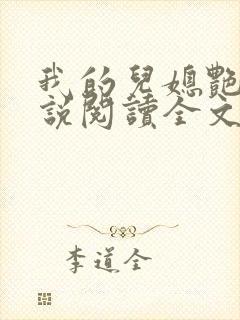 我的兒媳艷
說閱讀全文
李道全